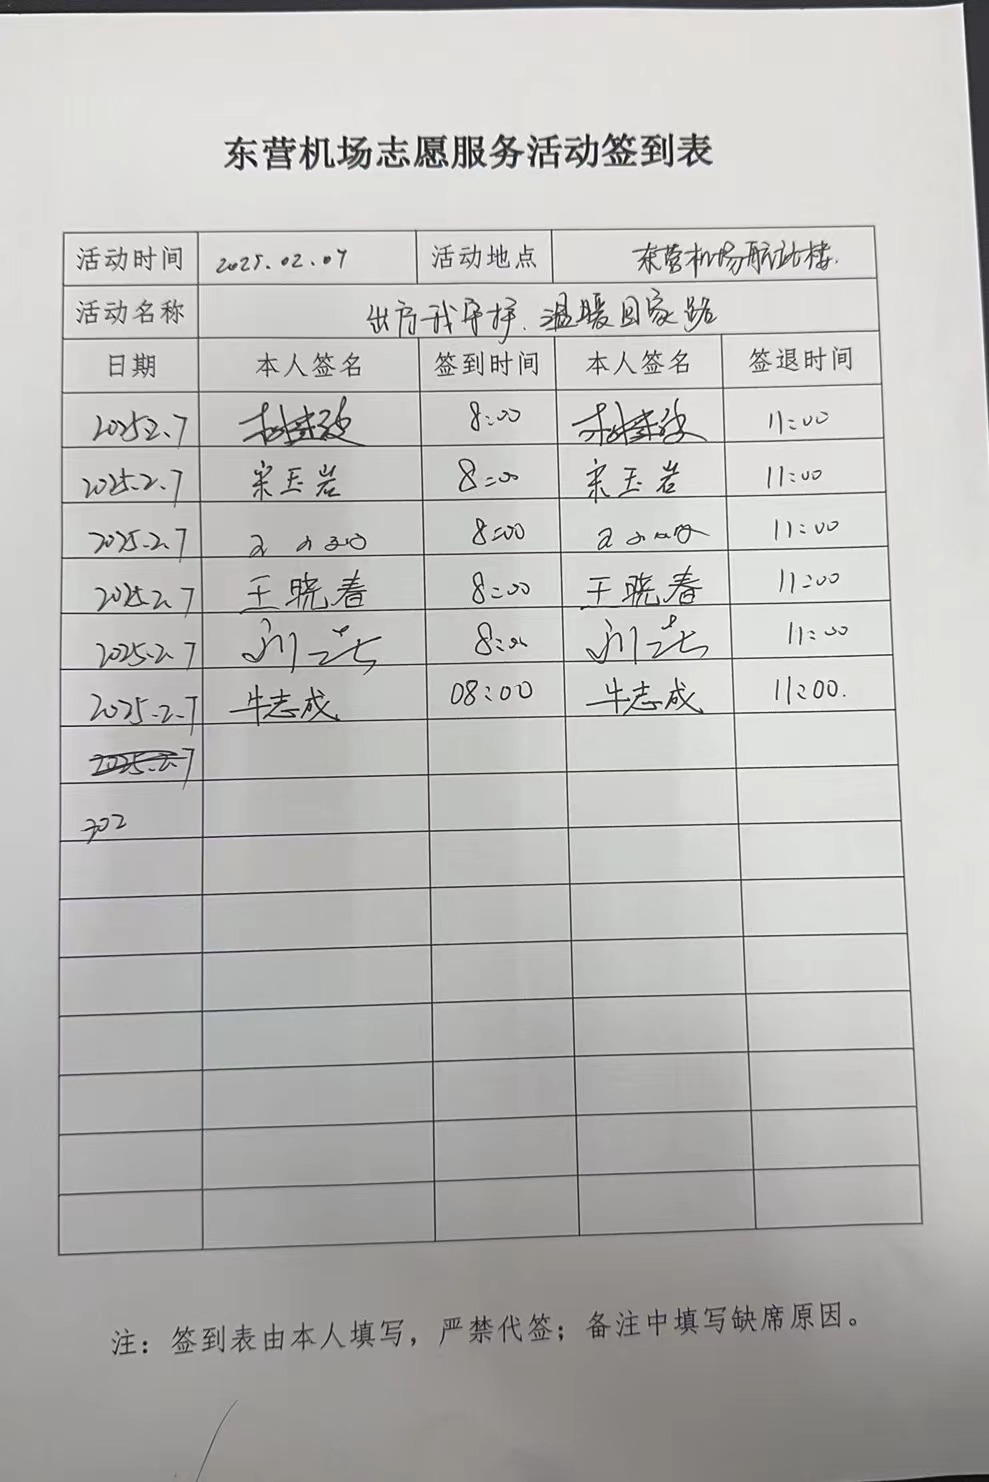 东营机场志愿服务活动签到表
活动时间 2025.02.07 活动地点 东营机场航站楼.
活动名称 出行我守护.温暖回家路
日期 本人签名 签到时间 本人签名 签退时间
2025.2.7 8:00 11:00
2025.2.7 宋玉岩 8:00 宋玉岩 11:00
2025.2.7 8:00 11:00
2025.2.7 王晓春 8:00 王晓春 11:00
2025.2.7 8:00 11:00
2025.2.7 牛志成 08:00 牛志成 11:00.
2025.2.7
302
注：签到表由本人填写，严禁代签；备注中填写缺席原因。